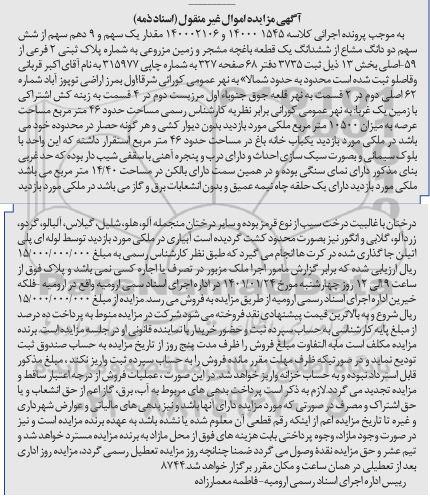 آگهی مزایده اموال غیر منقول (اسناد ذمه)
به موجب پرونده اجرائی کلاسه ۱۵۴۵ ۱۴۰۰۰ و ۱۴۰۰۰۲۱۰۶ مقدار یک سهم و ۹ دهم سهم از شش
سهم دو دانگ مشاع از ششدانگ یک قطعه باغچه مشجر و زمین مزروعی به شماره پلاک ثبتی ۲ فرعی از
۵۹-اصلی بخش ۱۳ ذیل ثبت ۳۷۳۵ دفتر ۶۸ صفحه ۳۲۷ به شماره چاپی ۳۱۵۹۷۷ به نام آقای اکبر قربانی
وقاصلو ثبت شده است محدود به حدود شمالا» به نهر عمومی کورانی شرقا»اول بمرز اراضی توپوز آباد شماره
۶۲ اصلی دوم در ۲ قسمت به نهر قلعه جوق جنوبا» اول مرزیست دوم در ۴ قسمت به زینه کش اشتراکی
با زمین یک غربا» به نهر عمومی کورانی برابر نظریه کارشناس رسمی مساحت حدود ۴۶ متر مربع مساحت
عرصه به میزان ۱۰۵۰۰ متر مربع ملکی مورد بازدید بدون دیوار کشی و هر گونه حصار در محدوده خود می
باشد در ملکی مورد بازدید یکباب خانه باغ در مساحت حدود ۴۶ متر مربع استقرار داشته که این واحد با
بلوک سیمانی و بصورت سبک سازی احداث و دارای درب و پنجره آهنی با سقفی شیب دار بوده که حد غربی
بنای مذکور دارای نمای سنگی بوده و در همین سمت دارای بالکن در مساحت ۱۴/۴۰ متر مربع می باشد
ملکی مورد بازدید دارای یک حلقه چاه نیمه عمیق و بدون انشعابات برق و گاز می باشد در ملکی مورد بازدید
درختان با غالبیت درخت سیب از نوع قرمز بوده و سایر درختان منجمله آلو،هلو،شلیل، گیلاس، آلبالو، گردو،
زردآلو، گلابی و انگور نیز بصورت محدود کشت گردیده است آبیاری در ملکی مورد بازدید توسط لوله ای پلی
اتیلن جا گذاری شده در کرت ها انجام می گیرد که طبق نظر کارشناس رسمی به مبلغ ۱۵/۰۰۰/۰۰۰/۰۰۰
ریال ارزیابی شده که برابر گزارش مأمور اجرا ملک مزبور در تصرف یا اجاره کسی نمی باشد و پلاک فوق از
ساعت ۹ الی ۱۲ روز چهارشنبه مورخ ۱۴۰۱/۰۱/۲۴ در اداره اجرای اسناد رسمی ارومیه واقع در ارومیه -فلکه
خیرین اداره اجرای اسناد رسمی ارومیه از طریق مزایده به فروش می رسد. مزایده از مبلغ ۱۵/۰۰۰/۰۰۰/۰۰۰
ریال شروع و به بالاترین قیمت پیشنهادی نقد فروخته می شود شرکت در مزایده منوط به پرداخت ده درصد
از مبلغ پایه کارشناسی به حساب سپرده ثبت و حضور خریدار یا نماینده قانونی او در جلسه مزایده است. برنده
مزایده مکلف است مابه التفاوت مبلغ فروش را ظرف مدت پنج روز از تاریخ مزایده به حساب صندوق ثبت
تودیع نماید و در صورتیکه ظرف مهلت مقرر مانده فروش را به حساب سپرده ثبت واریز نکند ، مبلغ مذکور
قابل استرداد نبوده و به حساب خزانه واریز خواهد شد. در این صورت، عملیات فروش از درجه اعتبار ساقط و
مزایده تجدید می گردد. لازم به ذکر است پرداخت بدهی های مربوط به آب، برق، گاز اعم از حق انشعاب و یا
حق اشتراک و مصرف در صورتی که مورد مزایده دارای آنها باشد و نیز بدهی های مالیاتی و عوارض شهرداری
و غیره تا تاریخ مزایده اعم از اینکه رقم قطعی آن معلوم شده یا نشده باشد به عهده برنده مزایده است و نیز
در صورت وجود مازاد، وجوه پرداختی بابت هزینه های فوق از محل مازاد به برنده مزایده مسترد خواهد شد و
نیم عشر و حق مزایده نقدا» وصول می گردد ضمنا» چنانچه روز مزایده تعطیل رسمی گردد، مزایده روز اداری
بعد از تعطیلی در همان ساعت و مکان مقرر برگزار خواهد شد.۸۷۴۴
رییس اداره اجرای اسناد رسمی ارومیه-فاطمه معمارزاده